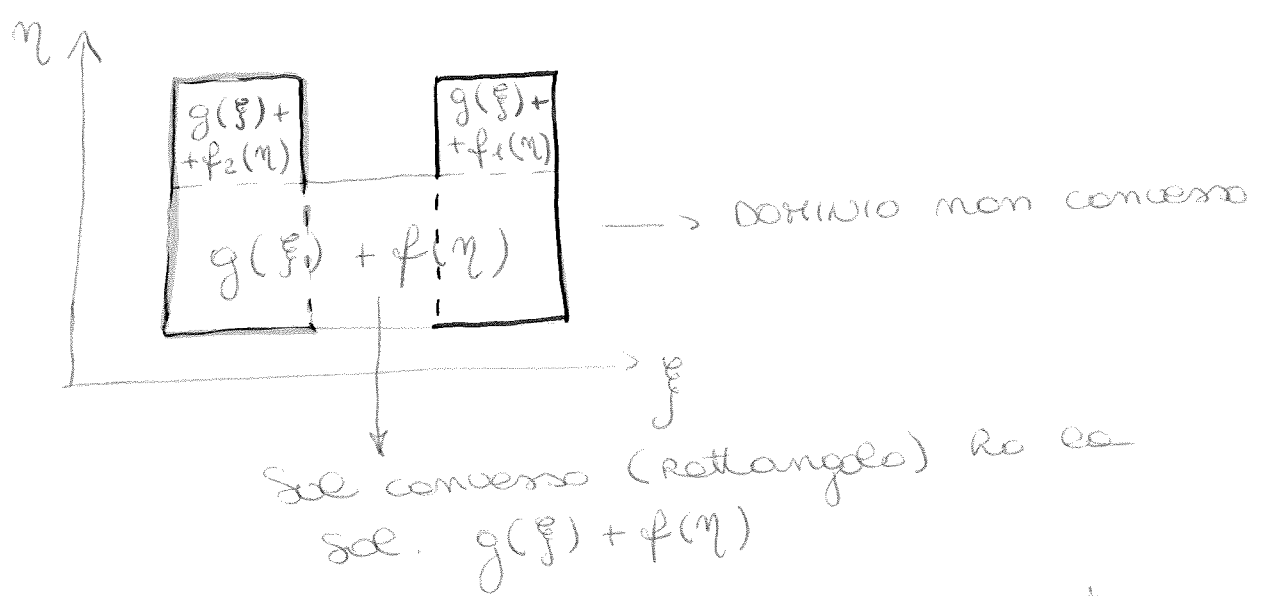 η
g(ξ)+
+f₂(η)
g(ξ)+
+f₁(η)
→ DOMINIO non convesso
g(ξ) + f(η)
ξ
Sul convesso (Rettangolo) ho la
sol. g(ξ) + f(η)